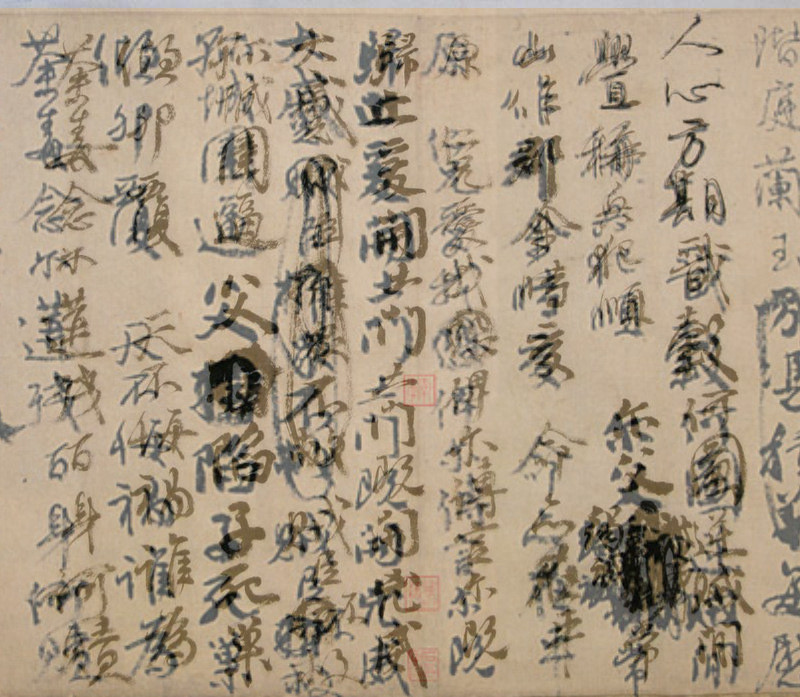 階庭蘭玉每慰
人心方期戩穀何圖逆賊間
釁稱兵犯順爾父竭誠常
山作郡余時受命亦在平
原仁兄愛我俾爾傳言爾既
歸止爰開土門土門既開凶威
大蹙賊臣不救
孤城圍逼父陷子死巢
傾卵覆天不悔禍誰為
荼毒念爾遘殘百身何贖